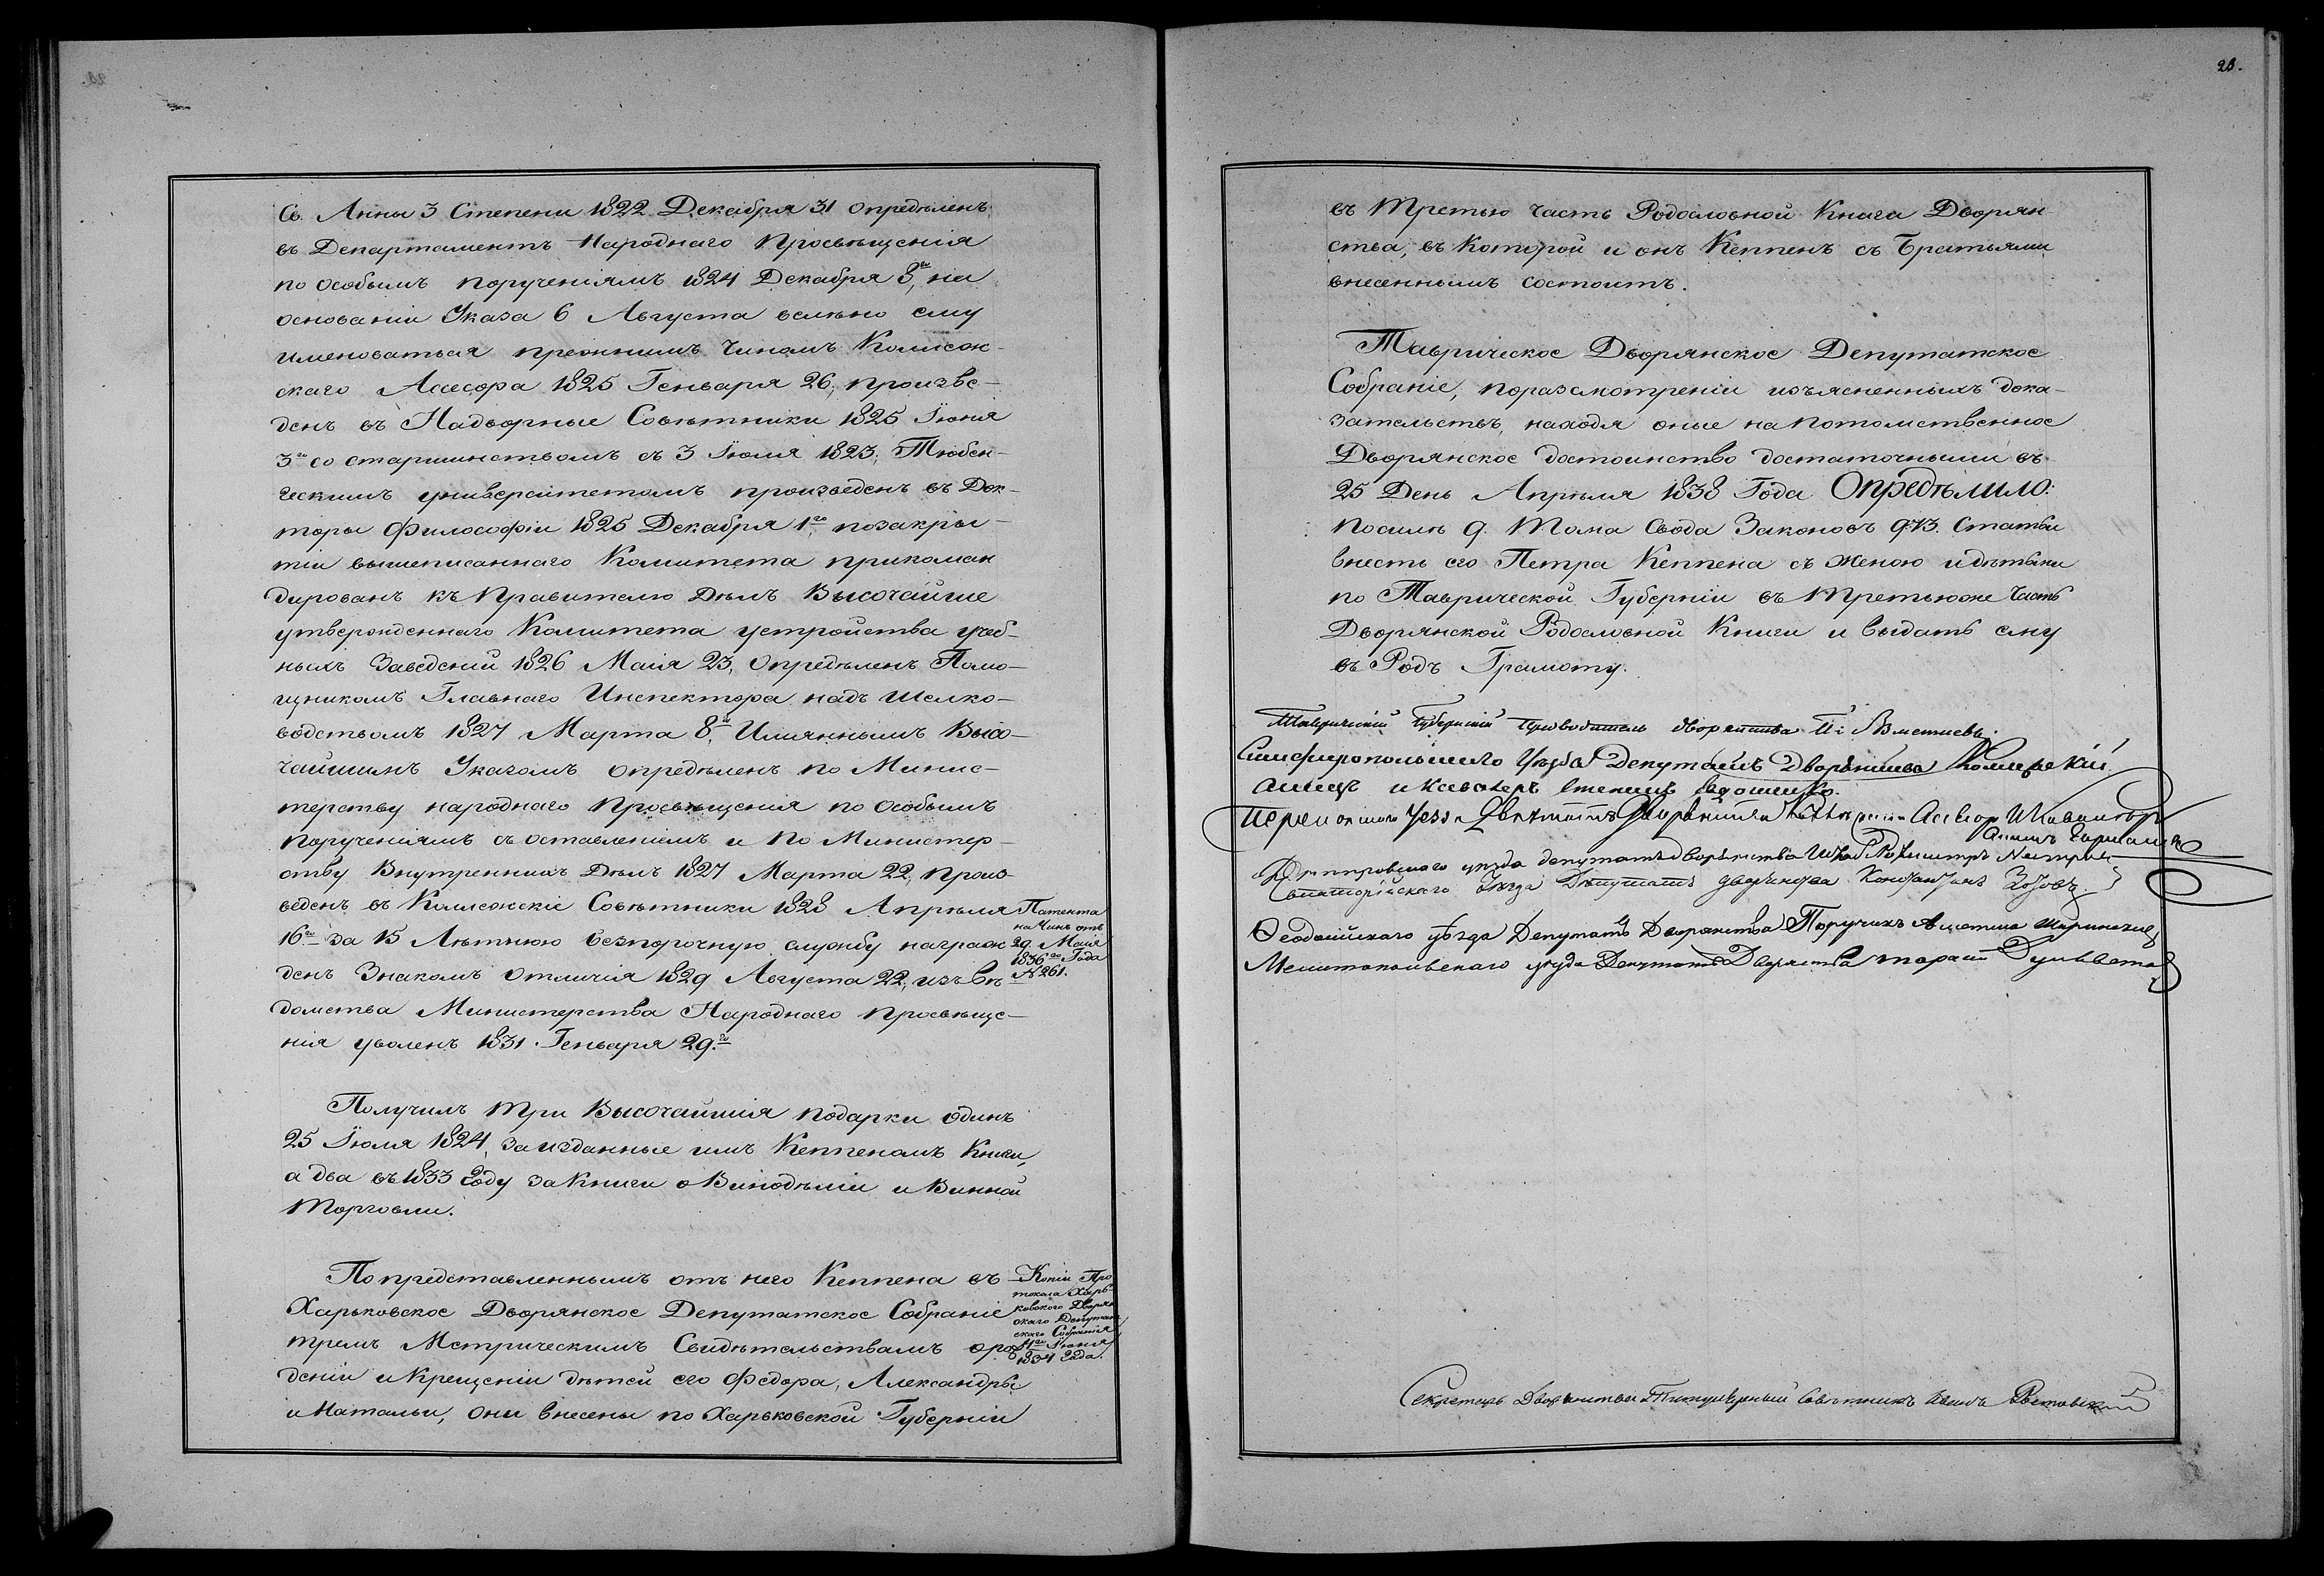 28.
Св. Анны 3 Степени 1822 Декабря 31 опредѣленъ
въ Департаментъ Народнаго Просвѣщенія
по особымъ порученіямъ 1824 Декабря 3го, на
основаніи Указа 6 Августа велѣно ему
именоваться прежнимъ Чиномъ Коллеж-
скаго Асессора 1825 Генваря 26, произве-
денъ въ Надворные Совѣтники 1825 Іюня
3го со старшинствомъ съ 3 Іюля 1823; Тюбен-
гескимъ университетомъ произведенъ въ Док-
торы Философіи 1825 Декабря 1го, позакры-
тіи вышеписаннаго Комитета прикоман
дированъ къ Правителю Дѣлъ Высочайше
утвержденнаго Комитета устройства учеб-
ныхъ Заведеній 1826 Маія 23, Опредѣленъ Помо-
щникомъ Главнаго Инспектора надъ шелко-
водствомъ 1827 Марта 8го, Имяннымъ Высо-
чайшимъ Указомъ опредѣленъ по Минис-
терству народнаго Просвѣщенія по Особымъ
порученіямъ съ оставленіемъ и по Министер-
ству Внутреннихъ Дѣлъ 1827 Марта 22, произ-
веденъ въ Коллежскіе Совѣтники 1828 Апрѣля
16го за 15 Лѣтнюю безпорочную службу награж
денъ Знакомъ Отличія 1829 Августа 22, изъ вѣ-
домства Министерства Народнаго Просвѣще-
нія уволенъ 1831 Генваря 29го
Патента
на Чинъ отъ
29 Маія
1836го Года
№ 261.
Получилъ три Высочайшія подарки одинъ
25 Іюля 1824, за изданные имъ Кеппеномъ Книги,
а два въ 1833 Году за Книги о Винодѣліи и Винной
торговли.
По представленнымъ отъ него Кеппена въ
Харьковское Дворянское Депутатское Собраніе
тремъ Метрическимъ Свидѣтельствамъ орож
деніи и крещеніи дѣтей его Федора, Александры
и Натальи, они внесены по Харьковской Губерніи
Копіи Про
токола Харь
ковскаго Дворян
скаго Депутат
скаго Собранія
Іюня
1834 Года.
въ третью часть Родословной Книги Дворян
ства, въ которой и онъ Кеппенъ съ Братьями
внесеннымъ состоитъ.
Таврическое Дворянское Депутатское
Собраніе, поразсмотреніи изъясненныхъ дока-
зательствъ, находя оные на потомственное
Дворянское достоинство достаточными въ
25 День Апрѣля 1838 Года Опредѣлило:
посилѣ 9. Тома Свода Законовъ 973. Статьи
внесть его Петра Кеппена съ женою и дѣтьми
по Таврической Губерніи въ третьюже Часть
Дворянской Родословной Книги и выдать ему
въ Родъ Грамоту.
Таврический Губернский Предводитель дворянства
Симферопольскаго Уѣзда Депутатъ Дворянства
и Кавалеръ
Депутатъ Дворянства
Днепровскаго уѣзда депутатъ дворянства
Евпаторійскаго Уѣзда Депутатъ дворянства Константинъ
Ѳеодосійскаго уѣзда Депутатъ Дворянства Поручикъ
Мелитопольскаго уѣзда Депутатъ Дворянства
Секретарь Дворянства Титулярный Совѣтникъ Иванъ